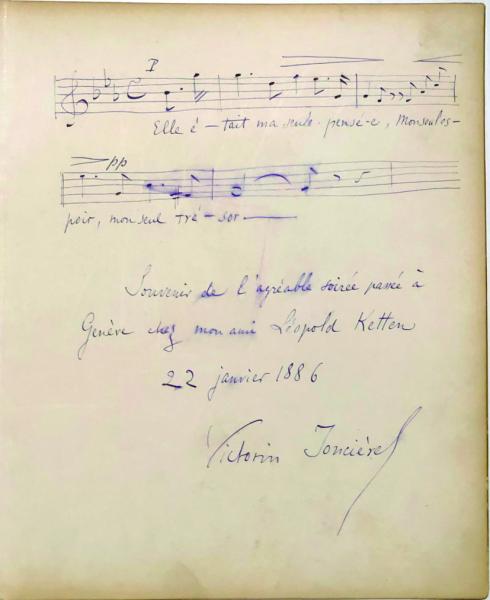 P
Elle é - tait ma seule pensé-e, mon seul es-
pp
poir, mon seul tré - sor
Souvenir de l'agréable soirée passée à
Genève chez mon ami Léopold Ketten
22 janvier 1886
Victorin Joncières